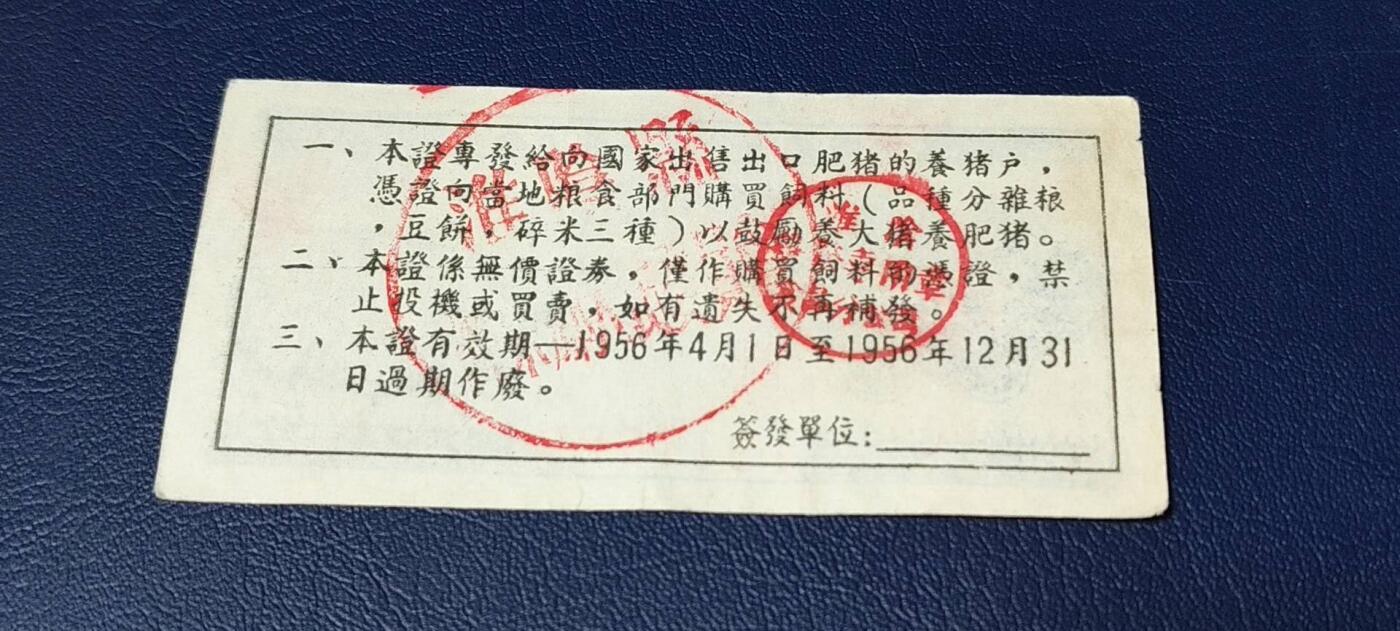 一、本證專發給向國家出售出口肥猪的養猪户，
憑證向當地粮食部門購買飼料（品種分雜粮
，豆餅，碎米三種）以鼓勵養大猪養肥猪。
二、本證係無價證券，僅作購買飼料的憑證，禁
止投機或買賣，如有遺失不再補發。
三、本證有效期—1956年4月1日至1956年12月31
日過期作廢。
簽發單位：
淮陰縣